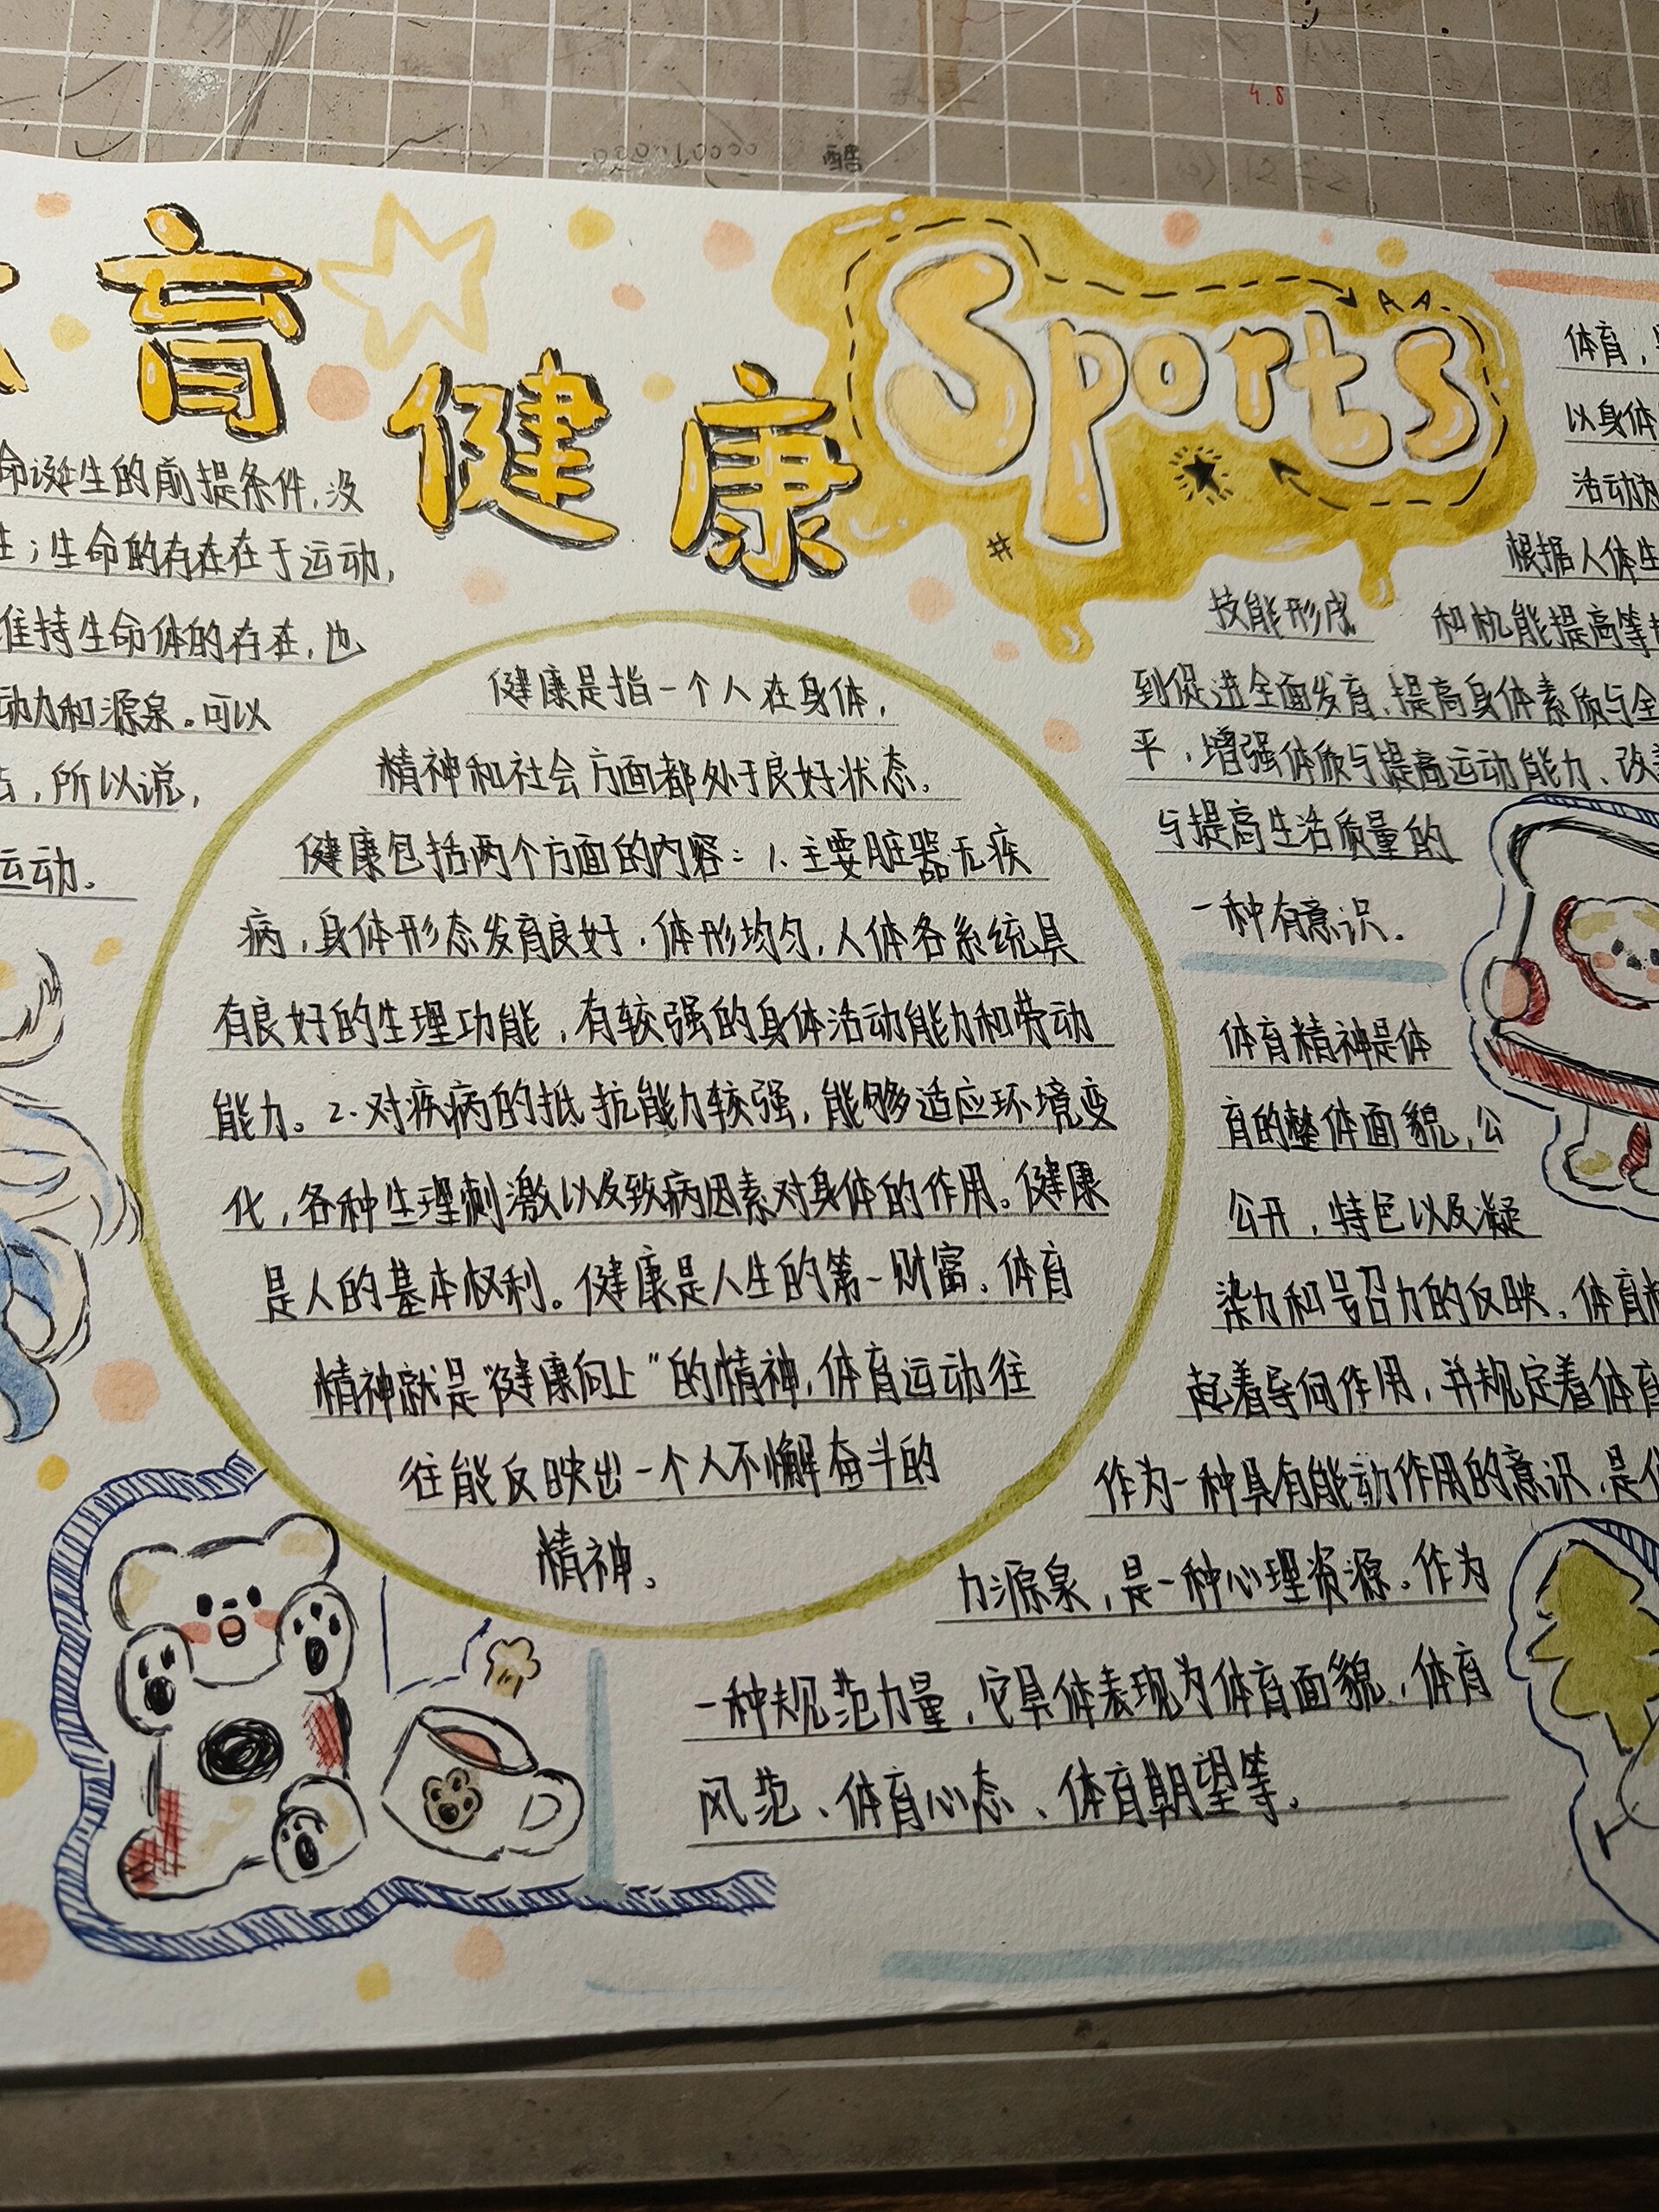 4.8
酷
育
健康
Sports
命诞生的前提条件，没
生；生命的存在在于运动，
维持生命体的存在，也
动力和源泉。可以
，所以说，
运动。
健康是指一个人在身体，
精神和社会方面都处于良好状态。
健康包括两个方面的内容：1.主要脏器无疾
病，身体形态发育良好，体形均匀，人体各系统具
有良好的生理功能，有较强的身体活动能力和劳动
能力。2.对疾病的抵抗能力较强，能够适应环境变
化，各种生理刺激以及致病因素对身体的作用。健康
是人的基本权利。健康是人生的第一财富，体育
精神就是“健康向上”的精神，体育运动往
往能反映出一个人不懈奋斗的
精神。
体育，
以身体
活动为
根据人体生
技能形成 和机能提高等
到促进全面发育、提高身体素质与全
平，增强体质与提高运动能力、改
与提高生活质量的
一种有意识.
体育精神是体
育的整体面貌，公
公开，特色以及凝
染力和号召力的反映，体育
起着导向作用，并规定着体育
作为一种具有能动作用的意识，是
力源泉，是一种心理资源。作为
一种规范力量，它具体表现为体育面貌，体育
风范、体育心态、体育期望等。